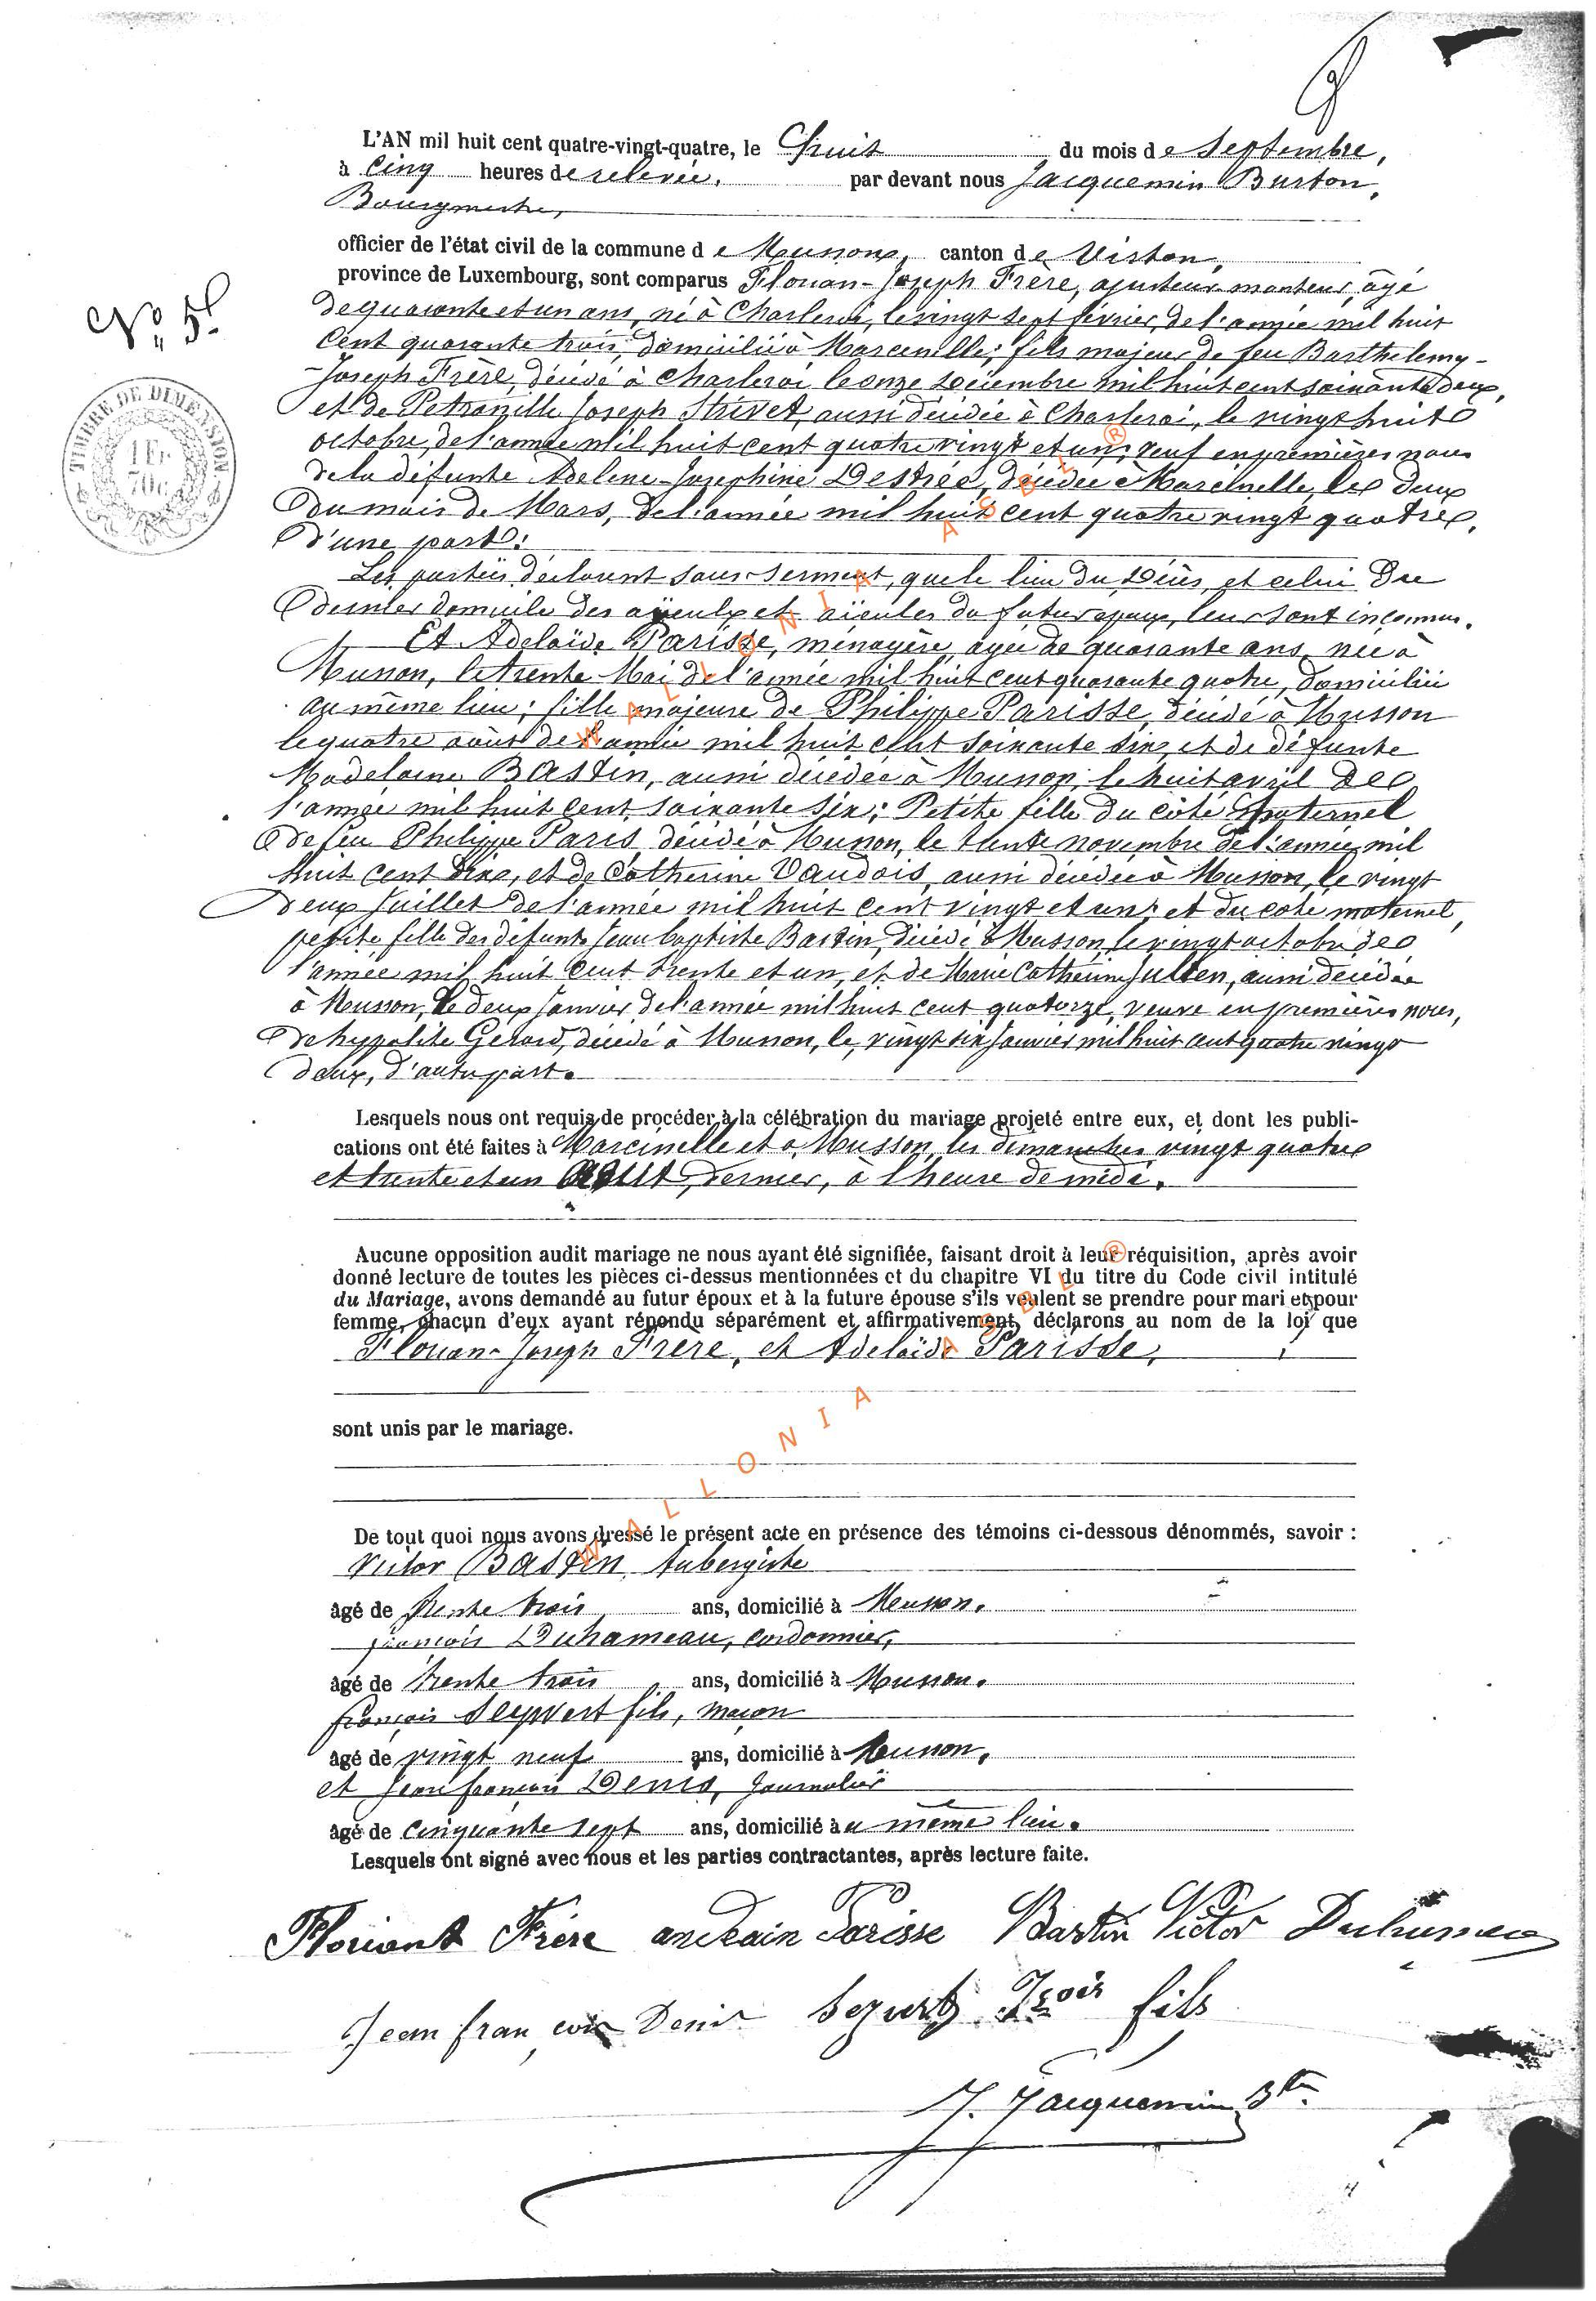 L'AN mil huit cent quatre-vingt-quatre, le huit du mois de Septembre,
à Cinq heures de relevée, par devant nous Jacquemin Burton,
Bourgmestre,
officier de l'état civil de la commune de Musson, canton de Virton,
province de Luxembourg, sont comparus Florian-Joseph Frère, ajusteur monteur, âgé
N° 5
de quarante et un ans, né à Charleroi, le vingt sept février de l'année mil huit
Cent quarante trois, domicilié à Marcinelle; fils majeur de feu Barthelemy-
-Joseph Frère, décédé à Charleroi le onze Décembre mil huit cent soixante deux,
et de Petronille Joseph Strivet, aussi décédée à Charleroi, le vingt huit
octobre, de l'année mil huit cent quatre vingt et un; veuf en premières noces
de la défunte Adelene-Josephine Destrée, décédée à Marcinelle, le deux
du mois de Mars, de l'année mil huit cent quatre vingt quatre,
d'une part:
TIMBRE DE DIMENSION
1 Fr
70c
Les parties déclarent sous serment, que le lieu du Décès, et celui du
dernier domicile des aÿeulx et aïeules du futur époux, leur sont inconnus.
Et Adelaïde Parisse, ménagère, agée de quarante ans, née à
Musson, le trente Mai de l'année mil huit cent quarante quatre, domiciliée
au même lieu; fille majeure de Philippe Parisse, décédé à Musson
le quatre août de l'année mil huit cent soixante six, et de défunte
Madelaine Bastin, aussi décédée à Musson, le huit avril de
l'année mil huit cent soixante six; Petite fille du côté paternel
de feu Philippe Paris, décédé à Musson, le trente novembre de l'année mil
huit cent dix, et de Catherine Vaudois, aussi décédée à Musson, le vingt
deux Juillet de l'année mil huit cent vingt et un; et du coté maternel,
petite fille des défunts Jean baptiste Bastin, décédé à Musson, le vingt octobre de
l'année mil huit cent trente et un, et de Marie Catherine Julien, aussi décédée
à Musson, le deux Janvier de l'année mil huit cent quatorze, veuve en premières noces,
de hyppolite Gerard, décédé à Musson, le, vingt six Janvier mil huit cent quatre vingt
deux, d'autre part.
Lesquels nous ont requis de procéder à la célébration du mariage projeté entre eux, et dont les publi-
cations ont été faites à Marcinelle et à Musson, les dimanches vingt quatre
et trente et un août, dernier, à l'heure de midi.
Aucune opposition audit mariage ne nous ayant été signifiée, faisant droit à leur réquisition, après avoir
donné lecture de toutes les pièces ci-dessus mentionnées et du chapitre VI du titre du Code civil intitulé
du Mariage, avons demandé au futur époux et à la future épouse s'ils veulent se prendre pour mari et pour
femme, chacun d'eux ayant répondu séparément et affirmativement, déclarons au nom de la loi que
Florian-Joseph Frère, et Adelaïde Parisse,
sont unis par le mariage.
De tout quoi nous avons dressé le présent acte en présence des témoins ci-dessous dénommés, savoir :
Victor Bastin, Aubergiste
âgé de trente trois ans, domicilié à Musson.
françois Duhameau, cordonnier,
âgé de trente trois ans, domicilié à Musson.
françois Seywert fils, maçon
âgé de vingt neuf ans, domicilié à Musson,
et Jean françois Denis, Journalier
âgé de cinquante sept ans, domicilié au même lieu.
Lesquels ont signé avec nous et les parties contractantes, après lecture faite.
Floriant Frère Parisse Bastin Victor Duhameau
Jean françois Denis fils
J. Jacquemin Btn
WALLONIA ASBL ®
WALLONIA ASBL ®